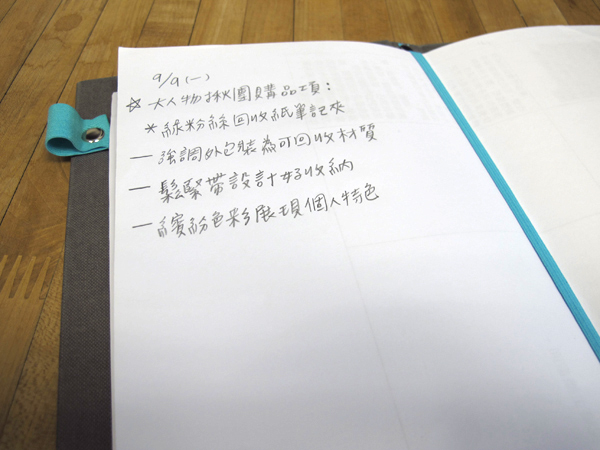 9/9(一)
☆大人物揪團購品項:
*綠粉絲回收紙筆記夾
—強調外包裝為可回收材質
—鬆緊帶設計好收納
—繽紛色彩展現個人特色